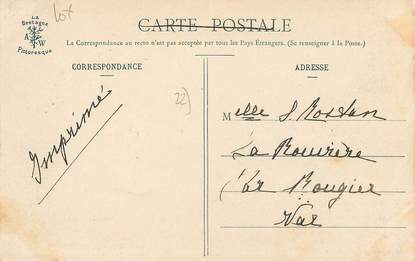 La
Bretagne
A W
Pittoresque
Lot
CARTE POSTALE
La Correspondance au recto n'est pas acceptée par tous les Pays Étrangers. (Se renseigner à la Poste.)
CORRESPONDANCE
ADRESSE
Imprimé
22)
Melle S Rostan
La Rouvière
Rougier
Var